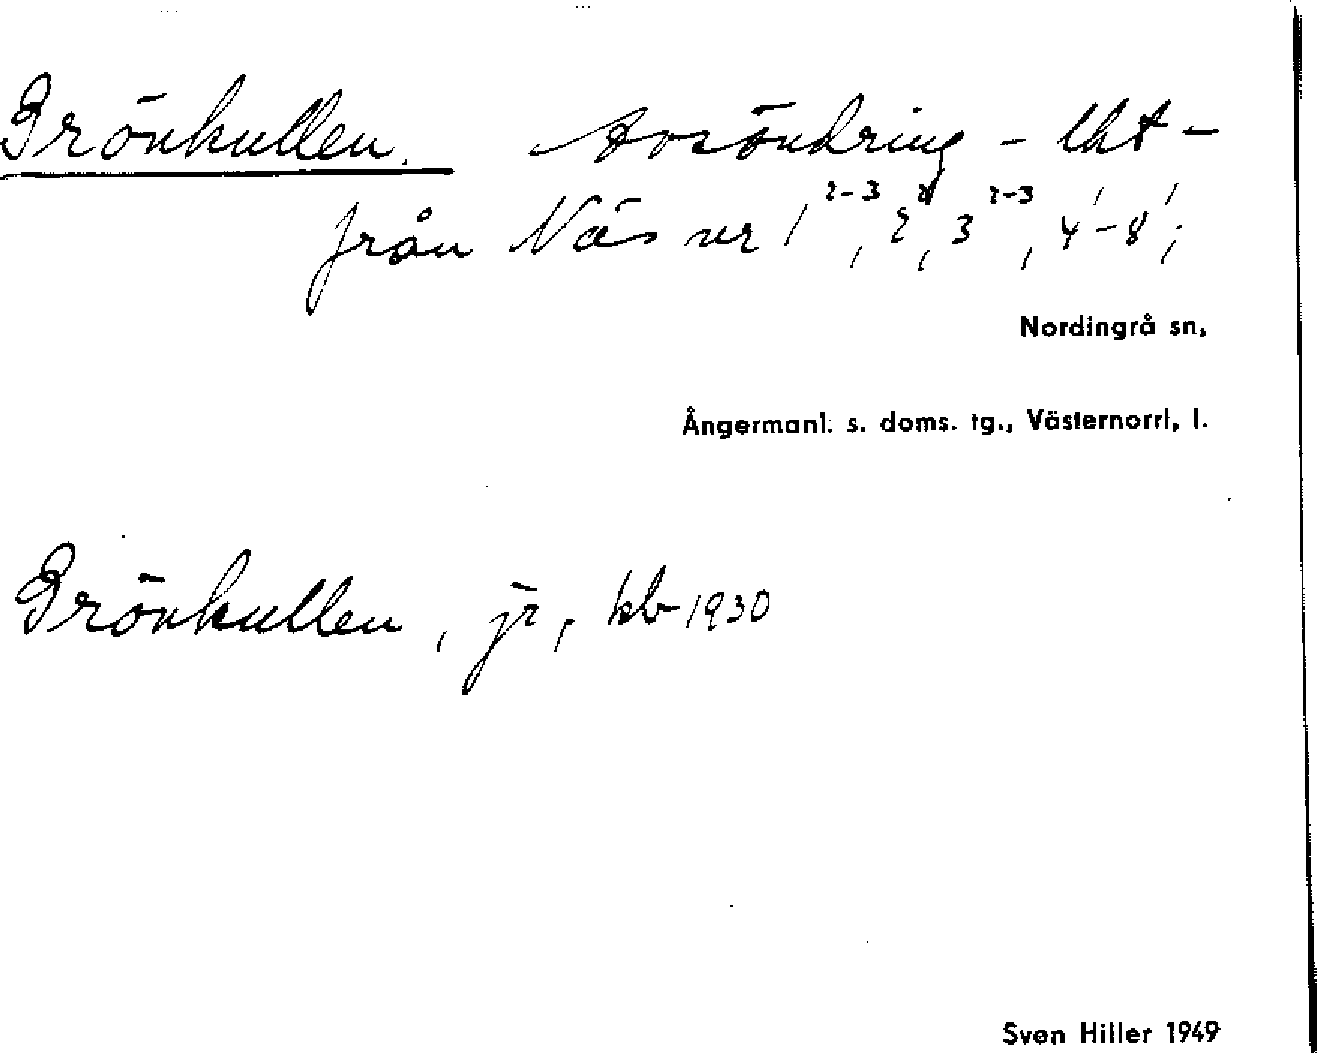 Grönkullen. Avsöndring - lht -
från Näs nr 1²⁻³, 2², 3²⁻³, 4¹-8¹;
Nordingrå sn,
Ångermanl. s. doms. tg., Västernorrl, l.
Grönkullen, jr, kb 1930
Sven Hiller 1949